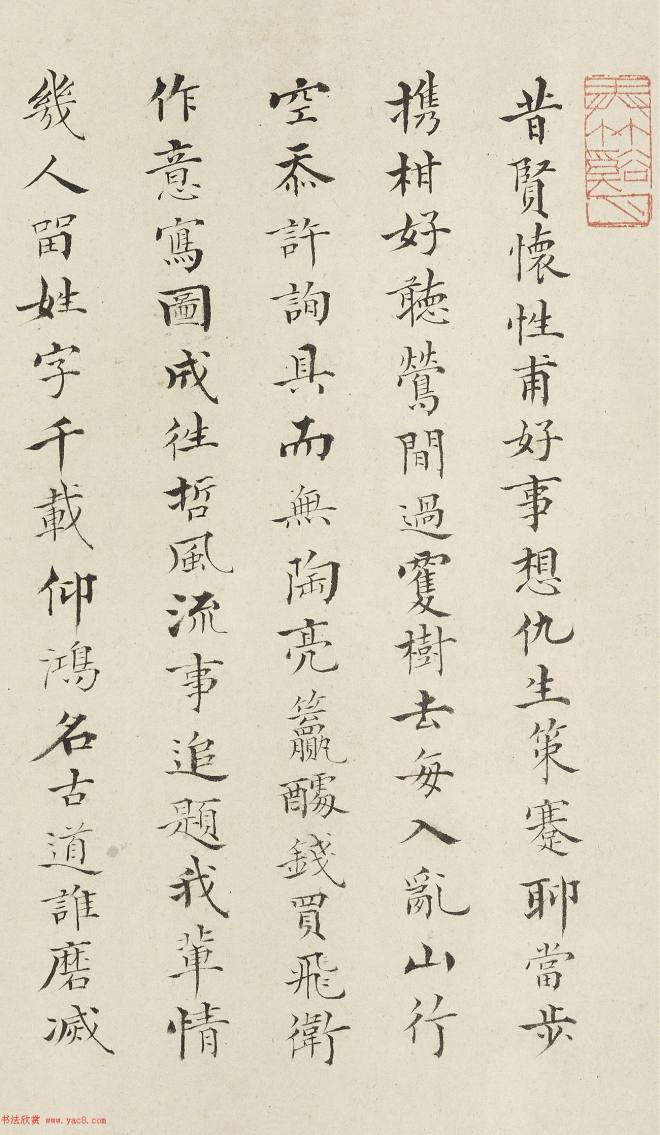 昔賢懷性甫好事想仇生策蹇聊當步
携柑好聽鶯間過雙樹去每入亂山行
空忝許詢具而無陶亮籯醵錢買飛衛
作意寫圖成往哲風流事追題我輩情
幾人留姓字千載仰鴻名古道誰磨滅
书法欣赏 www.yac8.com